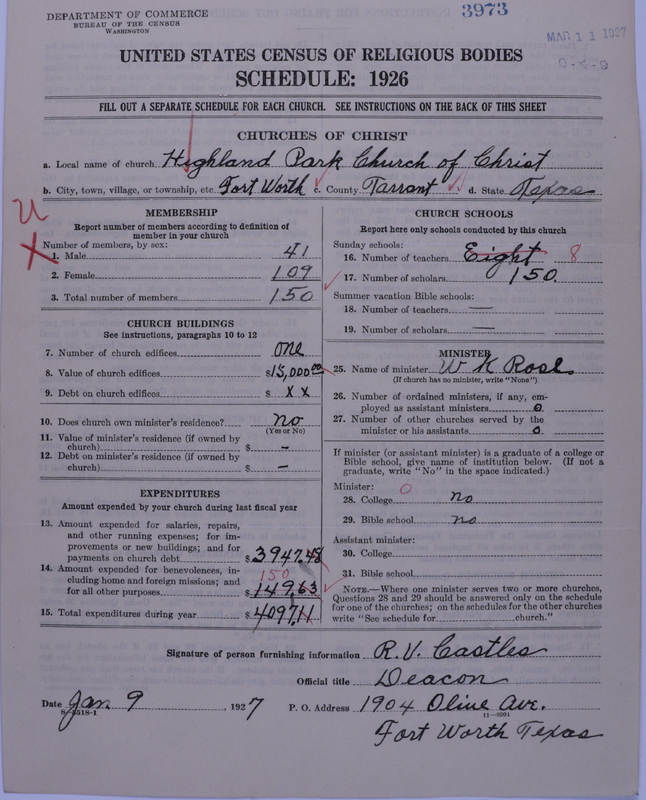 DEPARTMENT OF COMMERCE
BUREAU OF THE CENSUS
WASHINGTON
3973
MAR 11 1927
UNITED STATES CENSUS OF RELIGIOUS BODIES
SCHEDULE: 1926
FILL OUT A SEPARATE SCHEDULE FOR EACH CHURCH. SEE INSTRUCTIONS ON THE BACK OF THIS SHEET
CHURCHES OF CHRIST
a. Local name of church Highland Park Church of Christ
b. City, town, village, or township, etc. Fort Worth c. County Tarrant d. State Texas
U
X
MEMBERSHIP
Report number of members according to definition of
member in your church
Number of members, by sex:
1. Male 41
2. Female 109
3. Total number of members 150
CHURCH BUILDINGS
See instructions, paragraphs 10 to 12
7. Number of church edifices one
8. Value of church edifices $15,000 00
9. Debt on church edifices $ X X
10. Does church own minister's residence? no
(Yes or No)
11. Value of minister's residence (if owned by
church) $ –
12. Debt on minister's residence (if owned by
church) $ –
EXPENDITURES
Amount expended by your church during last fiscal year
13. Amount expended for salaries, repairs,
and other running expenses; for im-
provements or new buildings; and for
payments on church debt $3947.48
14. Amount expended for benevolences, in-
cluding home and foreign missions; and
150
for all other purposes $149.63
15. Total expenditures during year $4097.11
CHURCH SCHOOLS
Report here only schools conducted by this church
Sunday schools:
16. Number of teachers Eight 8
17. Number of scholars 150.
Summer vacation Bible schools:
18. Number of teachers —
19. Number of scholars —
MINISTER
25. Name of minister W K Rose
(If church has no minister, write "None")
26. Number of ordained ministers, if any, em-
ployed as assistant ministers 0
27. Number of other churches served by the
minister or his assistants 0
If minister (or assistant minister) is a graduate of a college or
Bible school, give name of institution below. (If not a
graduate, write "No" in the space indicated.)
Minister: 0
28. College no
29. Bible school no
Assistant minister:
30. College
31. Bible school
NOTE.—Where one minister serves two or more churches,
Questions 28 and 29 should be answered only on the schedule
for one of the churches; on the schedules for the other churches
write "See schedule for church."
Signature of person furnishing information R.V. Castles
Official title Deacon
Date Jan 9, 1927 P. O. Address 1904 Olive Ave.
8-5518-1 11—9204
Fort Worth Texas